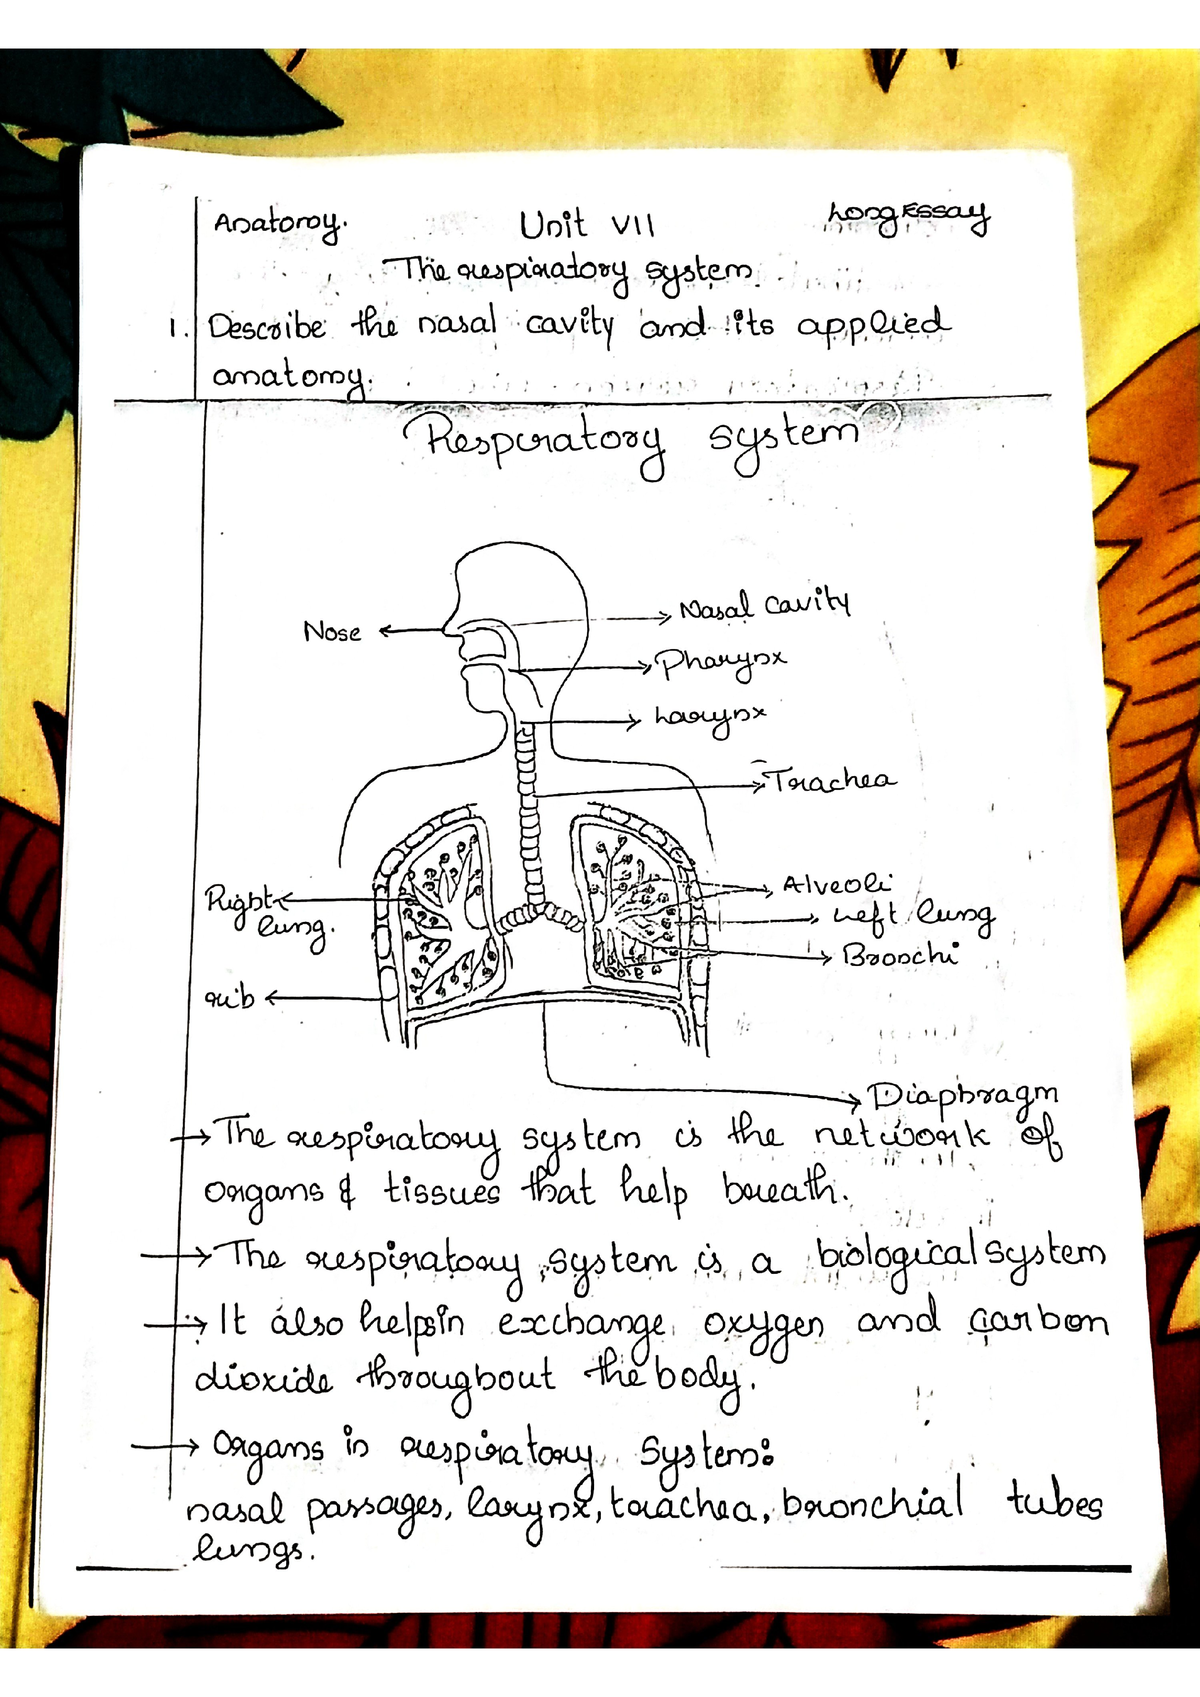 Anatomy. Unit VII Long Essay
The respiratory system
1. Describe the nasal cavity and its applied
anatomy.
Respiratory system
Nasal cavity
Nose
Pharynx
Larynx
Trachea
Alveoli
Right lung.
Left lung
Bronchi
rib
Diaphragm
→ The respiratory system is the network of
organs & tissues that help breath.
→ The respiratory system is a biological system
→ It also helps in exchange oxygen and carbon
dioxide throughout the body.
→ Organs in respiratory system:
nasal passages, larynx, trachea, bronchial tubes
lungs.